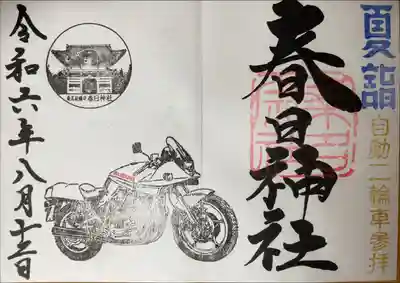 夏詣
自動二輪車參拝
春日神社
令和六年八月十三日
春日神社